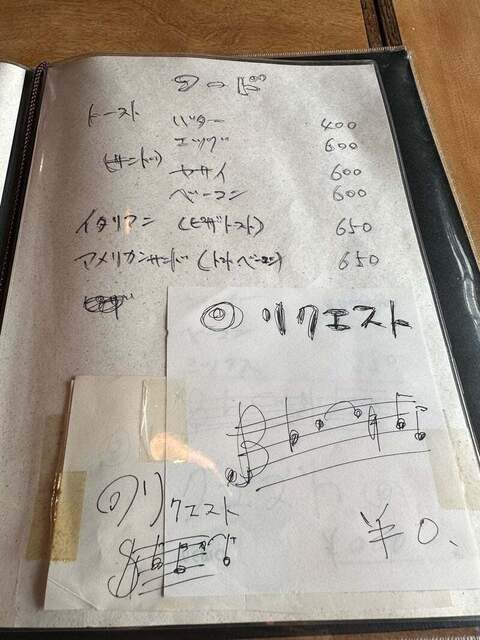 フード
トースト バター 400
エッグ 600
(サンド) ヤサイ 600
ベーコン 600
イタリアン (ピザトースト) 650
アメリカンサンド (トマトベーコン) 650
◎ リクエスト
¥0.
◎リクエスト